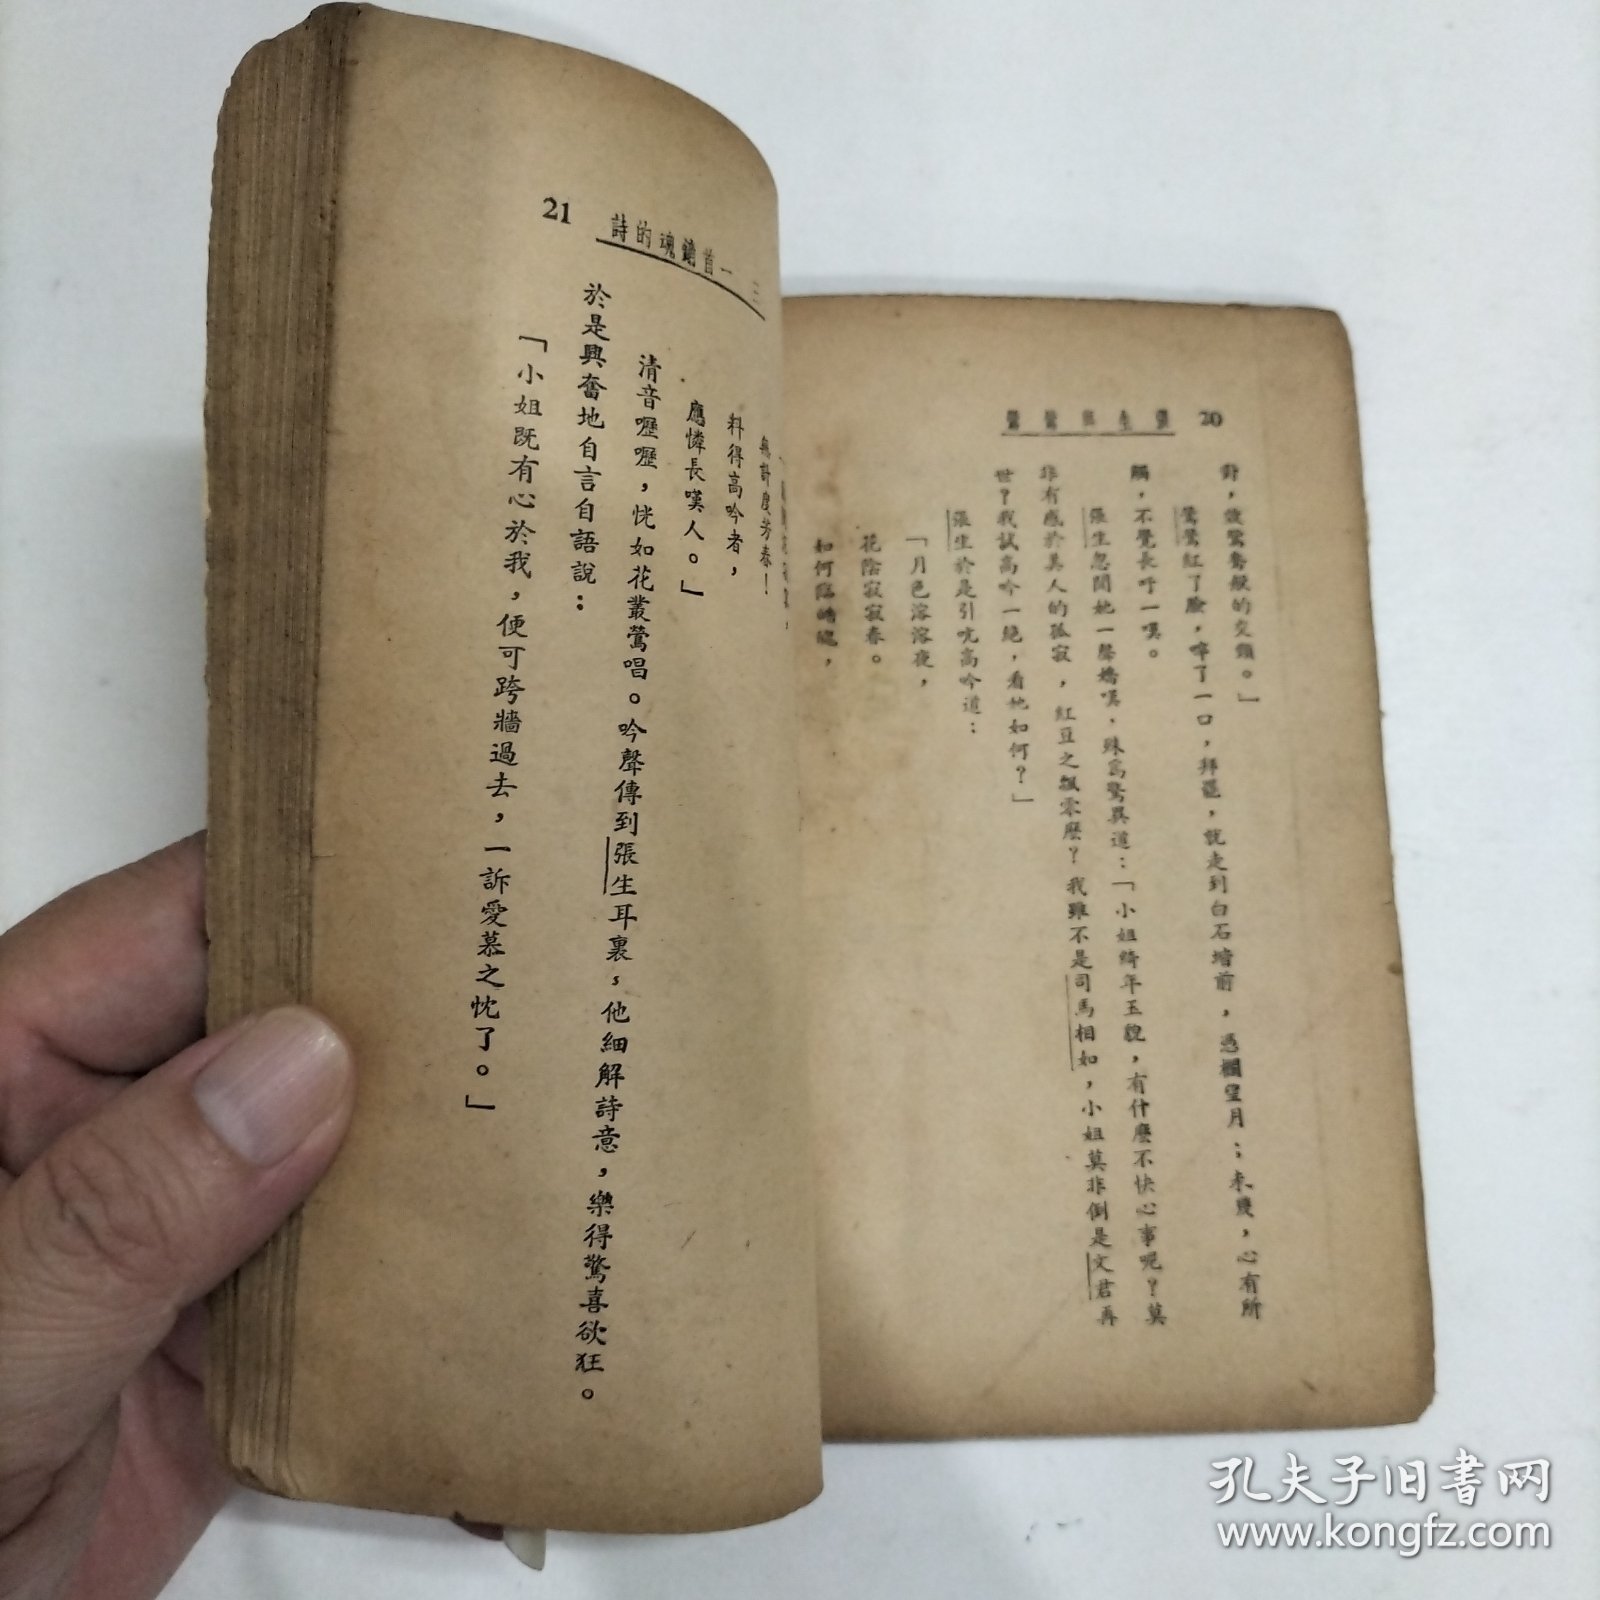 20 張生與鶯鶯
對，彼鴛鴦般的交頸。」
鶯鶯紅了臉，啐了一口，拜罷，就走到白石墻前，憑欄望月；未幾，心有所
觸，不覺長吁一嘆。
張生忽聞她一聲嬌嘆，殊爲驚異道：「小姐綺年玉貌，有什麼不快心事呢？莫
非有感於美人的孤寂，紅豆之飄零麼？我雖不是司馬相如，小姐莫非倒是文君再
世？我試高吟一絕，看她如何？」
張生於是引吭高吟道：
「月色溶溶夜，
花陰寂寂春。
如何臨皓魄，
一首鑄魂的詩 21
無計度芳春！
料得高吟者，
應憐長嘆人。」
清音嚦嚦，恍如花叢鶯唱。吟聲傳到張生耳裏，他細解詩意，樂得驚喜欲狂。
於是興奮地自言自語說：
「小姐既有心於我，便可跨牆過去，一訴愛慕之忱了。」
孔夫子旧书网
www.kongfz.com